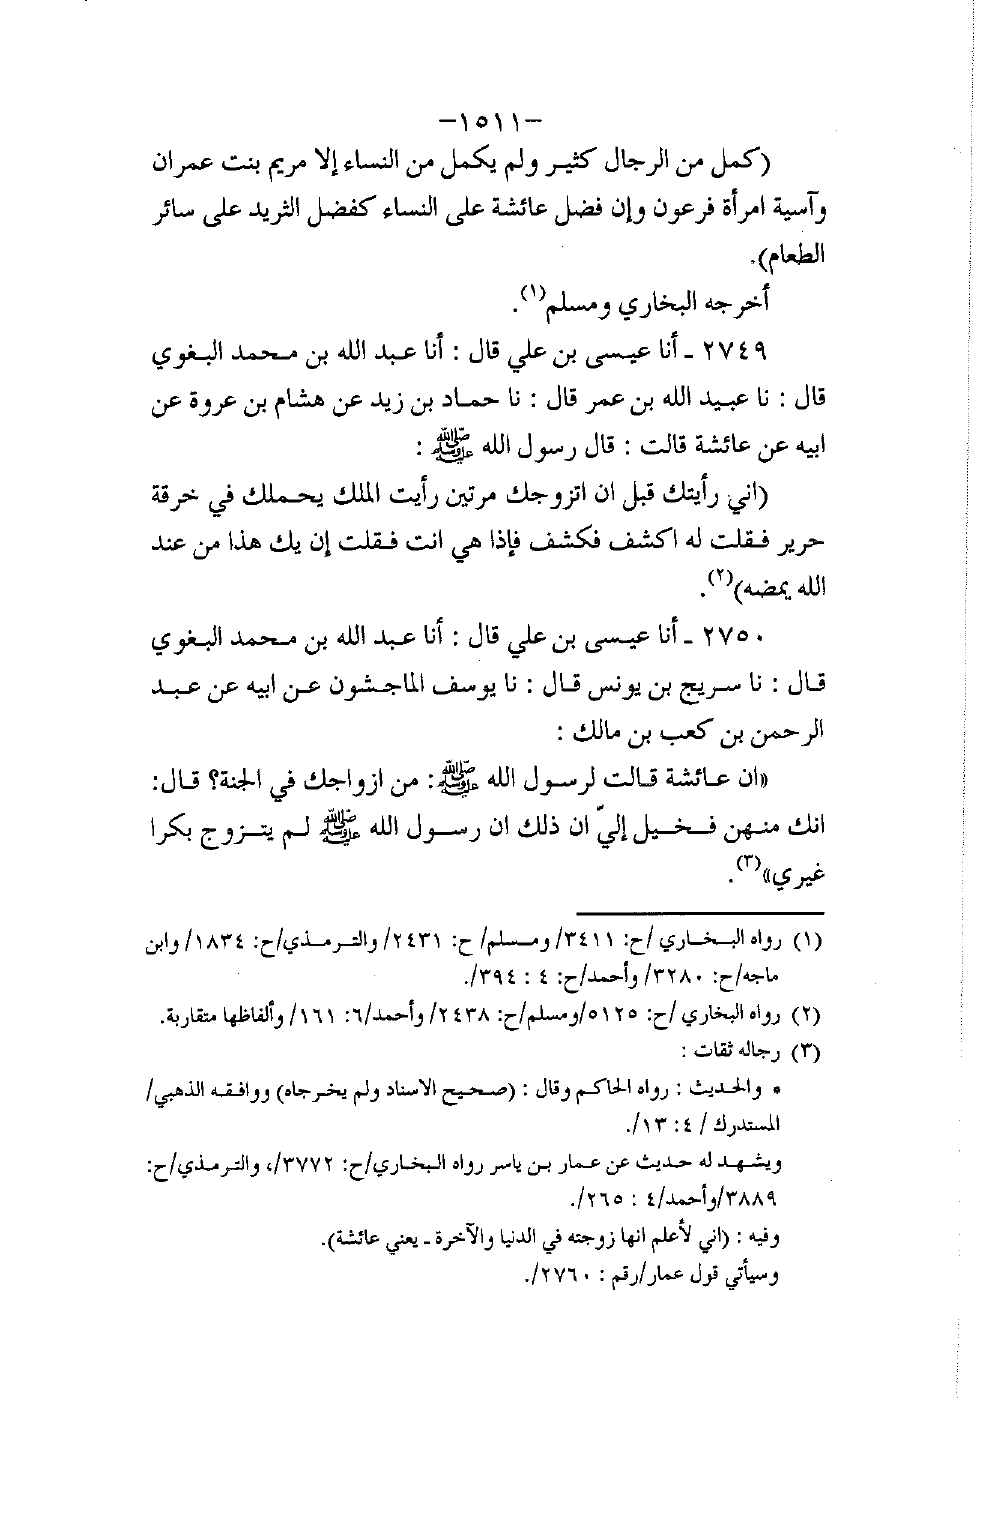 -١٥١١-
(كمل من الرجال كثير ولم يكمل من النساء إلا مريم بنت عمران
وآسية امرأة فرعون وإن فضل عائشة على النساء كفضل الثريد على سائر
الطعام).
أخرجه البخاري ومسلم(١).
٢٧٤٩ ـ أنا عيسى بن علي قال : أنا عبد الله بن محمد البغوي
قال : نا عبيد الله بن عمر قال : نا حماد بن زيد عن هشام بن عروة عن
ابيه عن عائشة قالت : قال رسول الله ﷺ :
(اني رأيتك قبل ان اتزوجك مرتين رأيت الملك يحملك في خرقة
حرير فقلت له اكشف فكشف فإذا هي انت فقلت إن يك هذا من عند
الله يمضه)(٢).
٢٧٥٠ ـ أنا عيسى بن علي قال : أنا عبد الله بن محمد البغوي
قال : نا سريج بن يونس قال : نا يوسف الماجشون عن ابيه عن عبد
الرحمن بن كعب بن مالك :
«ان عائشة قالت لرسول الله ﷺ: من ازواجك في الجنة؟ قال:
انك منهن فخيل إليّ ان ذلك ان رسول الله ﷺ لم يتزوج بكرا
غيري»(٣).
(١) رواه البخاري /ح: ٣٤١١/ ومسلم/ ح: ٢٤٣١/ والترمذي/ح: ١٨٣٤/ وابن
ماجه/ح: ٣٢٨٠/ وأحمد/ح: ٤ : ٣٩٤/.
(٢) رواه البخاري /ح: ٥١٢٥/ومسلم/ح: ٢٤٣٨/ وأحمد/٦: ١٦١/ وألفاظها متقاربة.
(٣) رجاله ثقات :
* والحديث : رواه الحاكم وقال : (صحيح الاسناد ولم يخرجاه) ووافقه الذهبي/
المستدرك / ٤: ١٣/.
ويشهد له حديث عن عمار بن ياسر رواه البخاري/ح: ٣٧٧٢/، والترمذي/ح:
٣٨٨٩/وأحمد/٤ : ٢٦٥/.
وفيه : (اني لأعلم انها زوجته في الدنيا والآخرة ـ يعني عائشة).
وسيأتي قول عمار/رقم : ٢٧٦٠/.